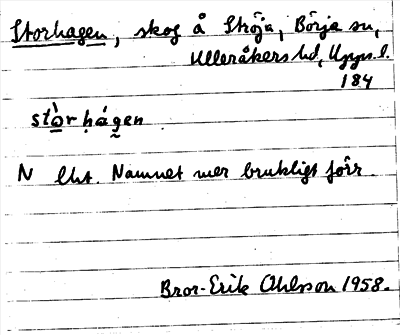 Storhagen, skog å Ströja, Börje sn,
Ulleråkers hd, Upps. l.
184
stòr hágen
N Uht. Namnet mer brukligt förr.
Bror-Erik Ohlsson 1958.